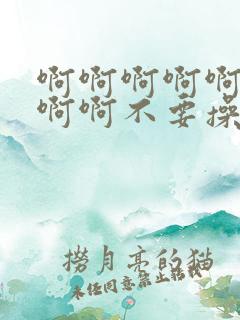 啊啊啊啊啊
啊啊不要操
捞月亮的猫
未经同意禁止转载